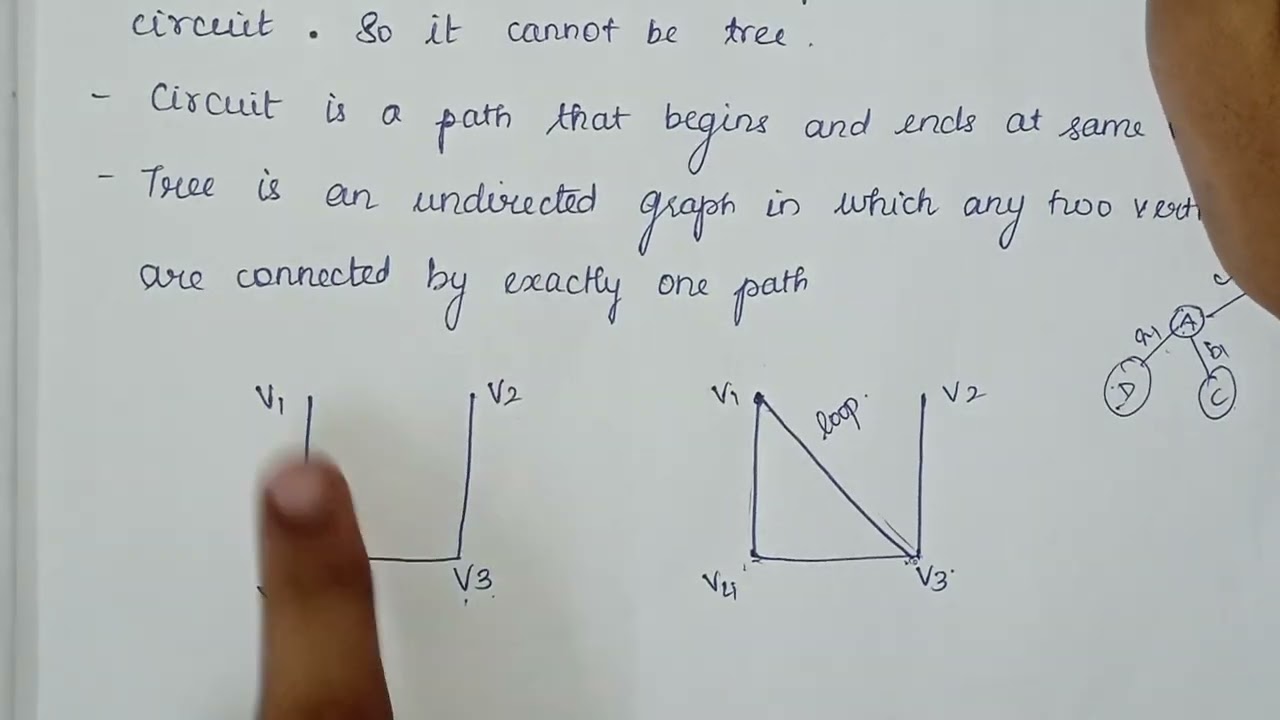 circuit . So it cannot be tree .
- Circuit is a path that begins and ends at same
- Tree is an undirected graph in which any two verti
are connected by exactly one path
V1 V2
V3
V1 loop V2
V4 V3
A
a1 b1
D C